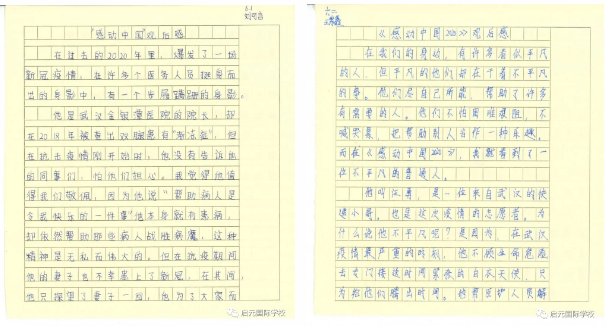 6.1
刘司言
"感动中国"观后感
在过去的2020年里，爆发了一场
新冠疫情，在许多个医务人员挺身而
出的身影中，有一个步履蹒跚的身影。
他是武汉金银潭医院的院长，却
在2018年被查出双腿患有"渐冻症"，但
在抗击疫情刚开始时，他没有告诉他
的同事们，怕他们担心。我觉得他值
得我们敬佩，因为他说"帮助病人是
令我快乐的一件事"他本身就有疾病，
却依然帮助那些病人战胜病魔，这种
精神是无私而伟大的，但在抗疫期间
他的妻子也不幸患上了新冠，在其间，
他只探望了妻子一回，他为了大家而
启元国际学校
六二
《感动中国2020》观后感
在我们的身边，有许多看似平凡
的人，但平凡的他们却在干着不平凡
的事。他们尽自己所能，帮助了许多
有需要的人。他们不怕困难艰阻，不
喊哭累，把帮助别人当作一种乐趣。
而在《感动中国2020》，我就看到了一
位不平凡的普通人。
他叫汪勇，是一位来自武汉的快
递小哥。也是这次疫情的志愿者。为
什么说他不平凡呢？是因为，在武汉
疫情最严重的时刻，他不顾生命危险
出去门接送时间紧迫的白衣天使，只
为给他们腾出时间。他帮医护人员解
启元国际学校